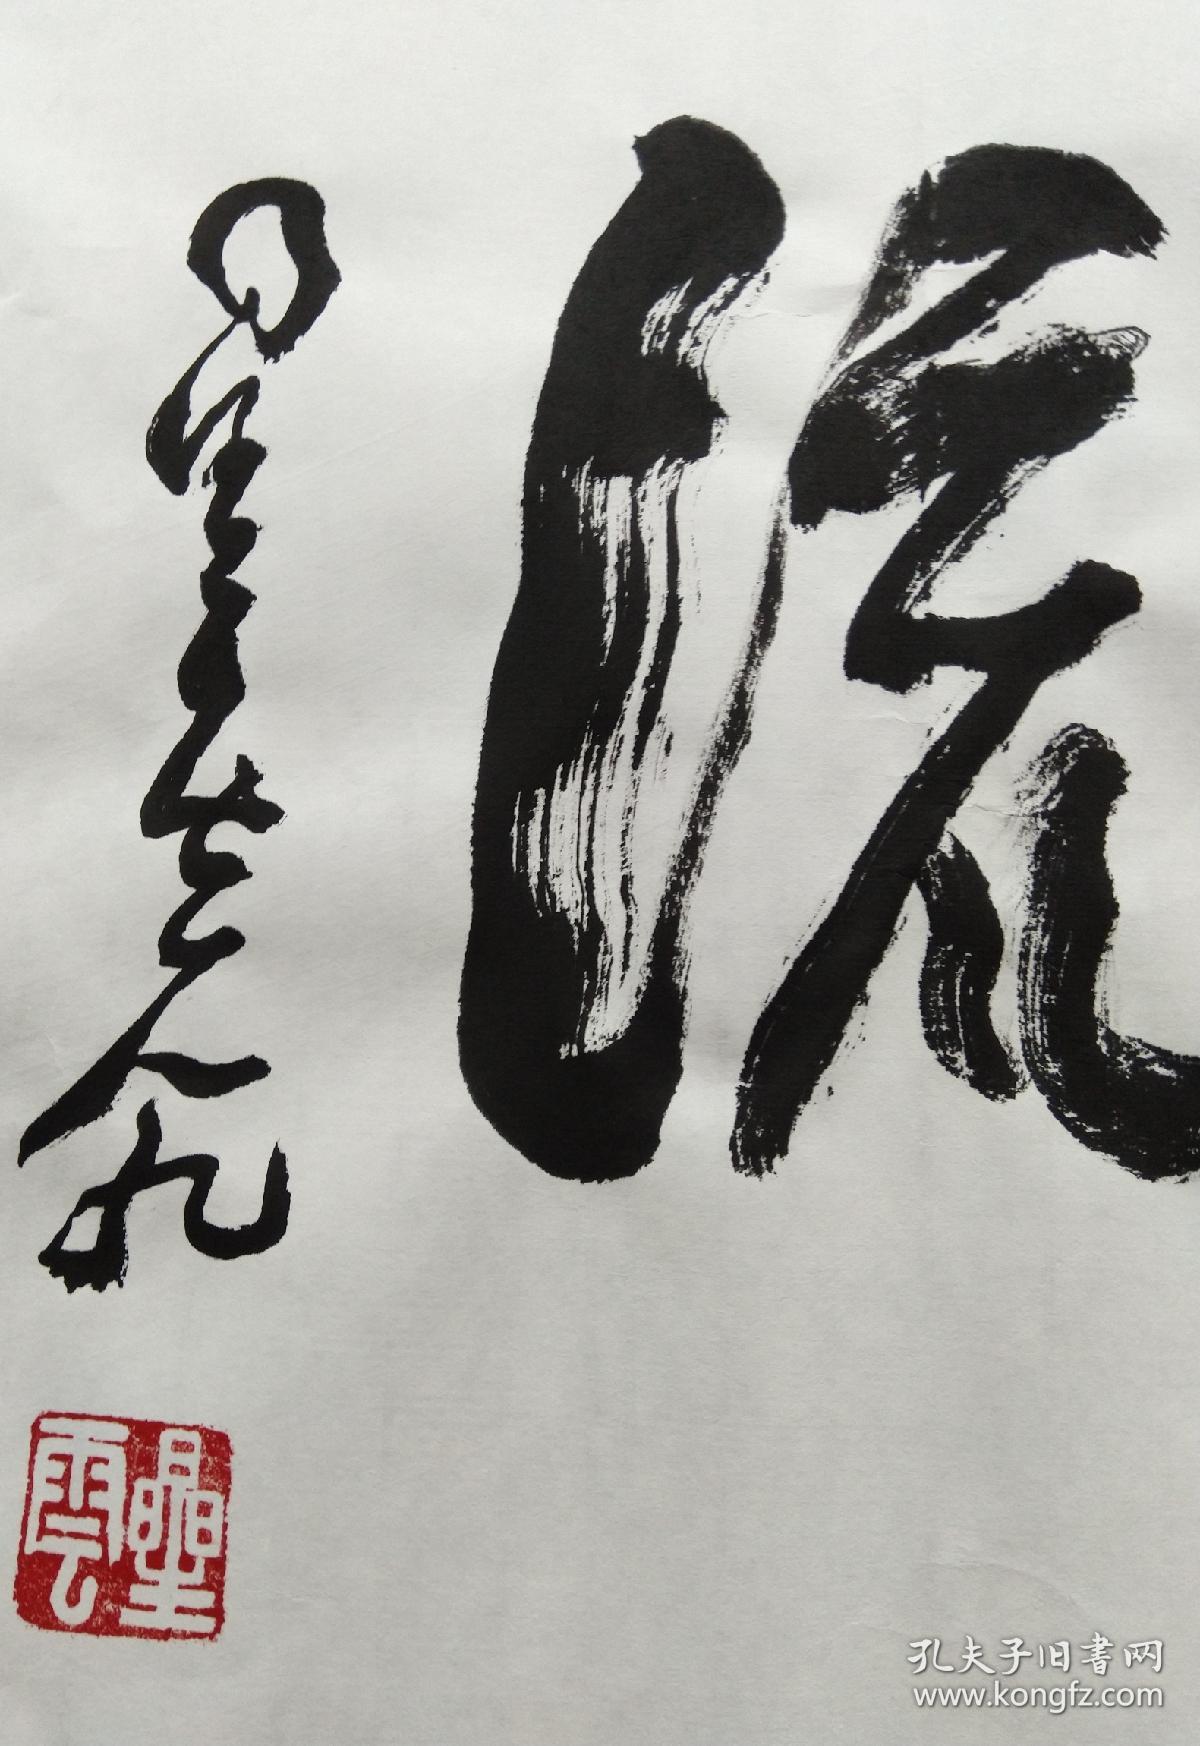 流
星雲
星雲
孔夫子旧書网
www.kongfz.com